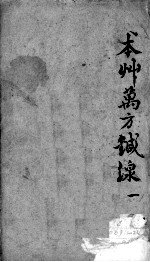 本艸萬方鍼線 一